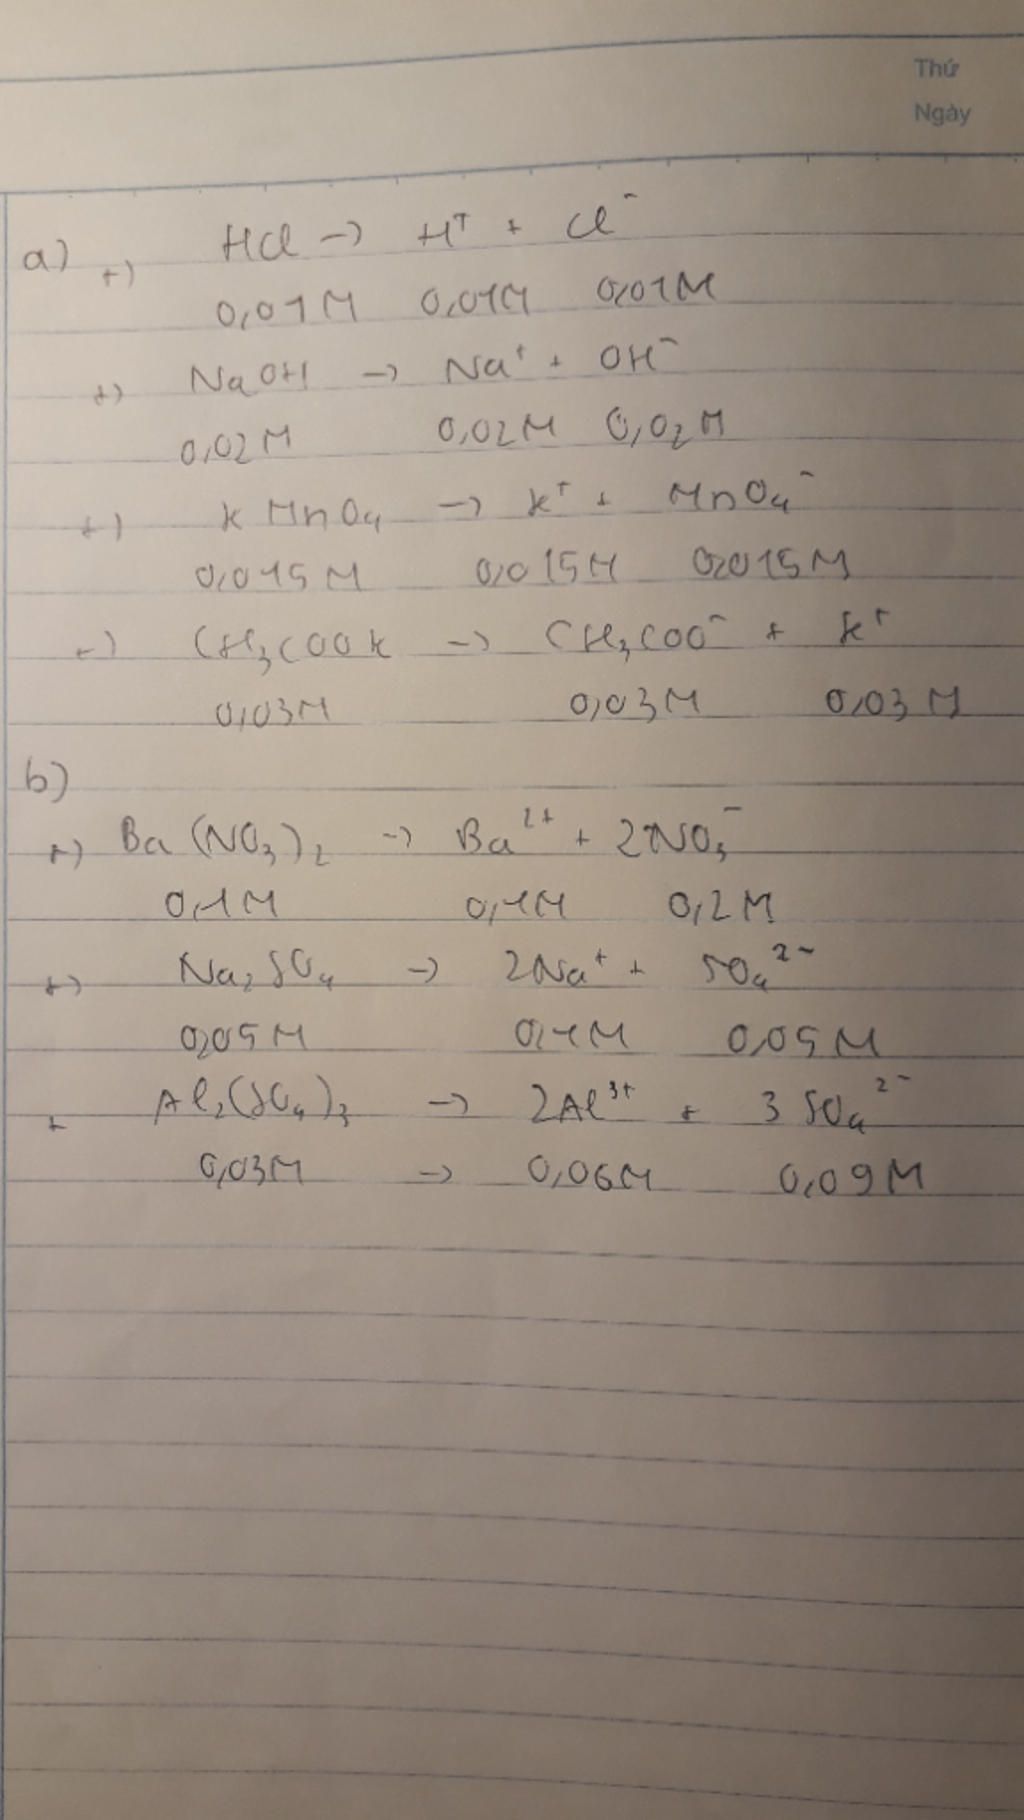 Thứ
Ngày
a) +) HCl → H⁺ + Cl⁻
0,01M 0,01M 0,01M
+) NaOH → Na⁺ + OH⁻
0,02M 0,02M 0,02M
+) KMnO₄ → K⁺ + MnO₄⁻
0,015M 0,015M 0,015M
+) CH₃COOK → CH₃COO⁻ + K⁺
0,03M 0,03M 0,03M
b)
+) Ba(NO₃)₂ → Ba²⁺ + 2NO₃⁻
0,1M 0,1M 0,2M
+) Na₂SO₄ → 2Na⁺ + SO₄²⁻
0,05M 0,1M 0,05M
+ Al₂(SO₄)₃ → 2Al³⁺ + 3SO₄²⁻
0,03M → 0,06M 0,09M